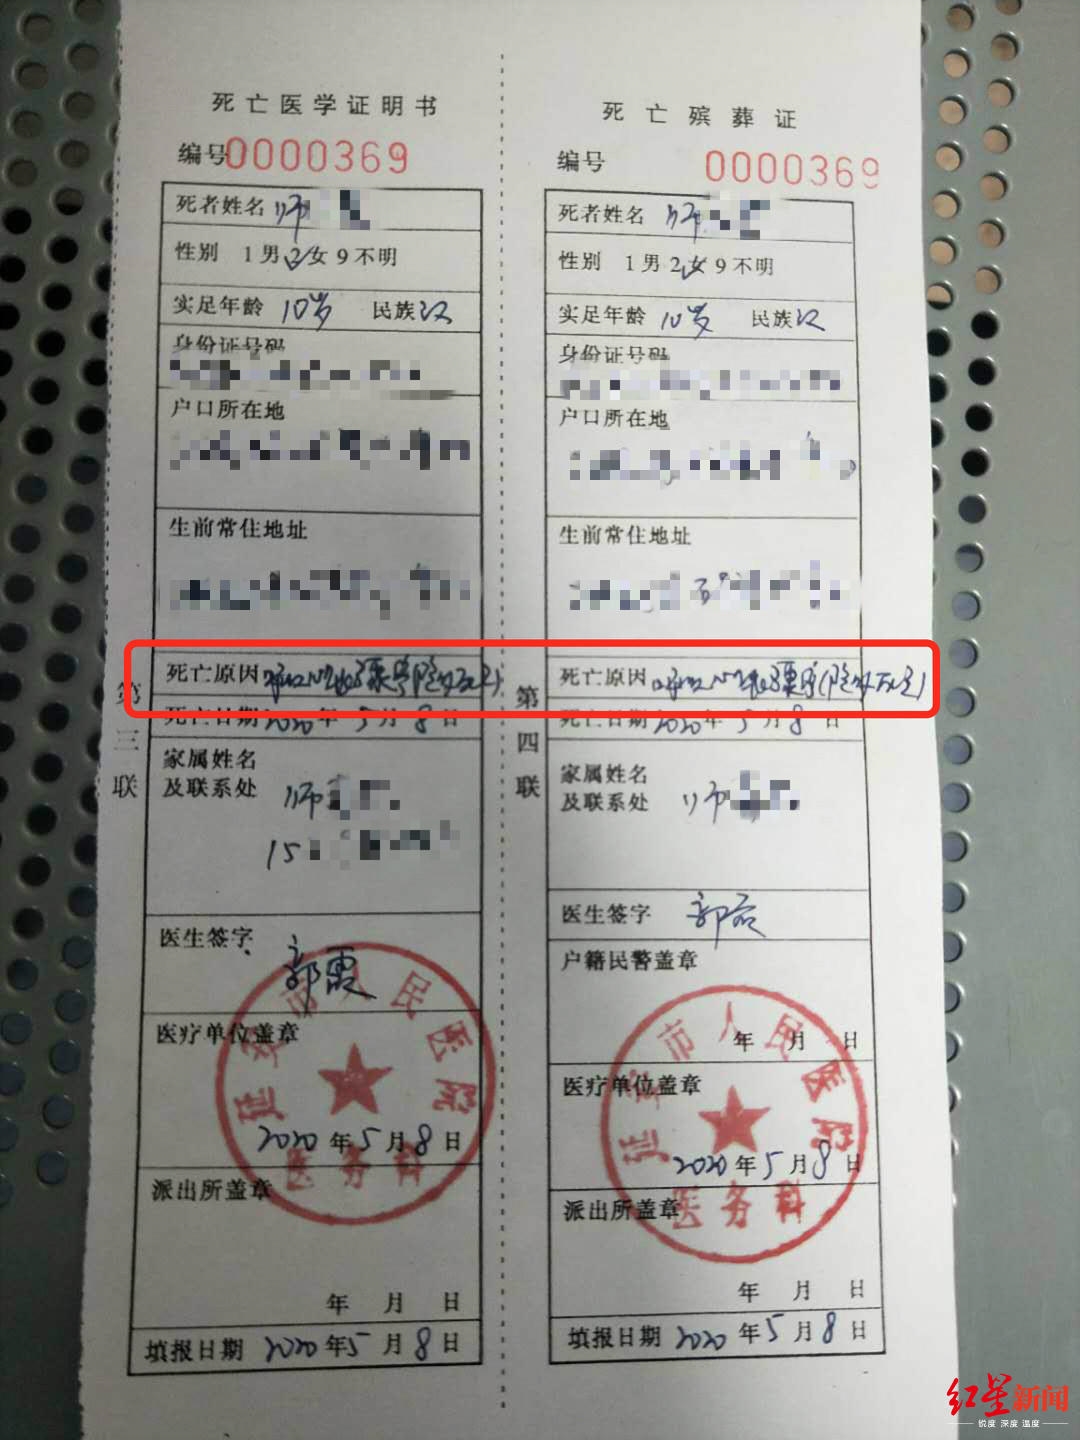 死亡医学证明书
编号0000369
死者姓名 师
性别 1男2女9不明
实足年龄 10岁 民族汉
身份证号码
户口所在地
生前常住地址
死亡原因 呼吸心跳骤停
死亡日期2020年5月8日
家属姓名
及联系处 师
15
医生签字 郭霞
医疗单位盖章
2020年5月8日
派出所盖章
年 月 日
填报日期 2020年5月8日
第三联
市人民医院
医务科
死亡殡葬证
编号 0000369
死者姓名 师
性别 1男2女9不明
实足年龄 10岁 民族汉
身份证号码
户口所在地
生前常住地址
死亡原因 呼吸心跳骤停
死亡日期2020年5月8日
家属姓名
及联系处 师
医生签字 郭霞
户籍民警盖章
年 月 日
医疗单位盖章
2020年5月8日
派出所盖章
年 月 日
填报日期 2020年5月8日
第四联
市人民医院
医务科
红星新闻
锐度 深度 温度